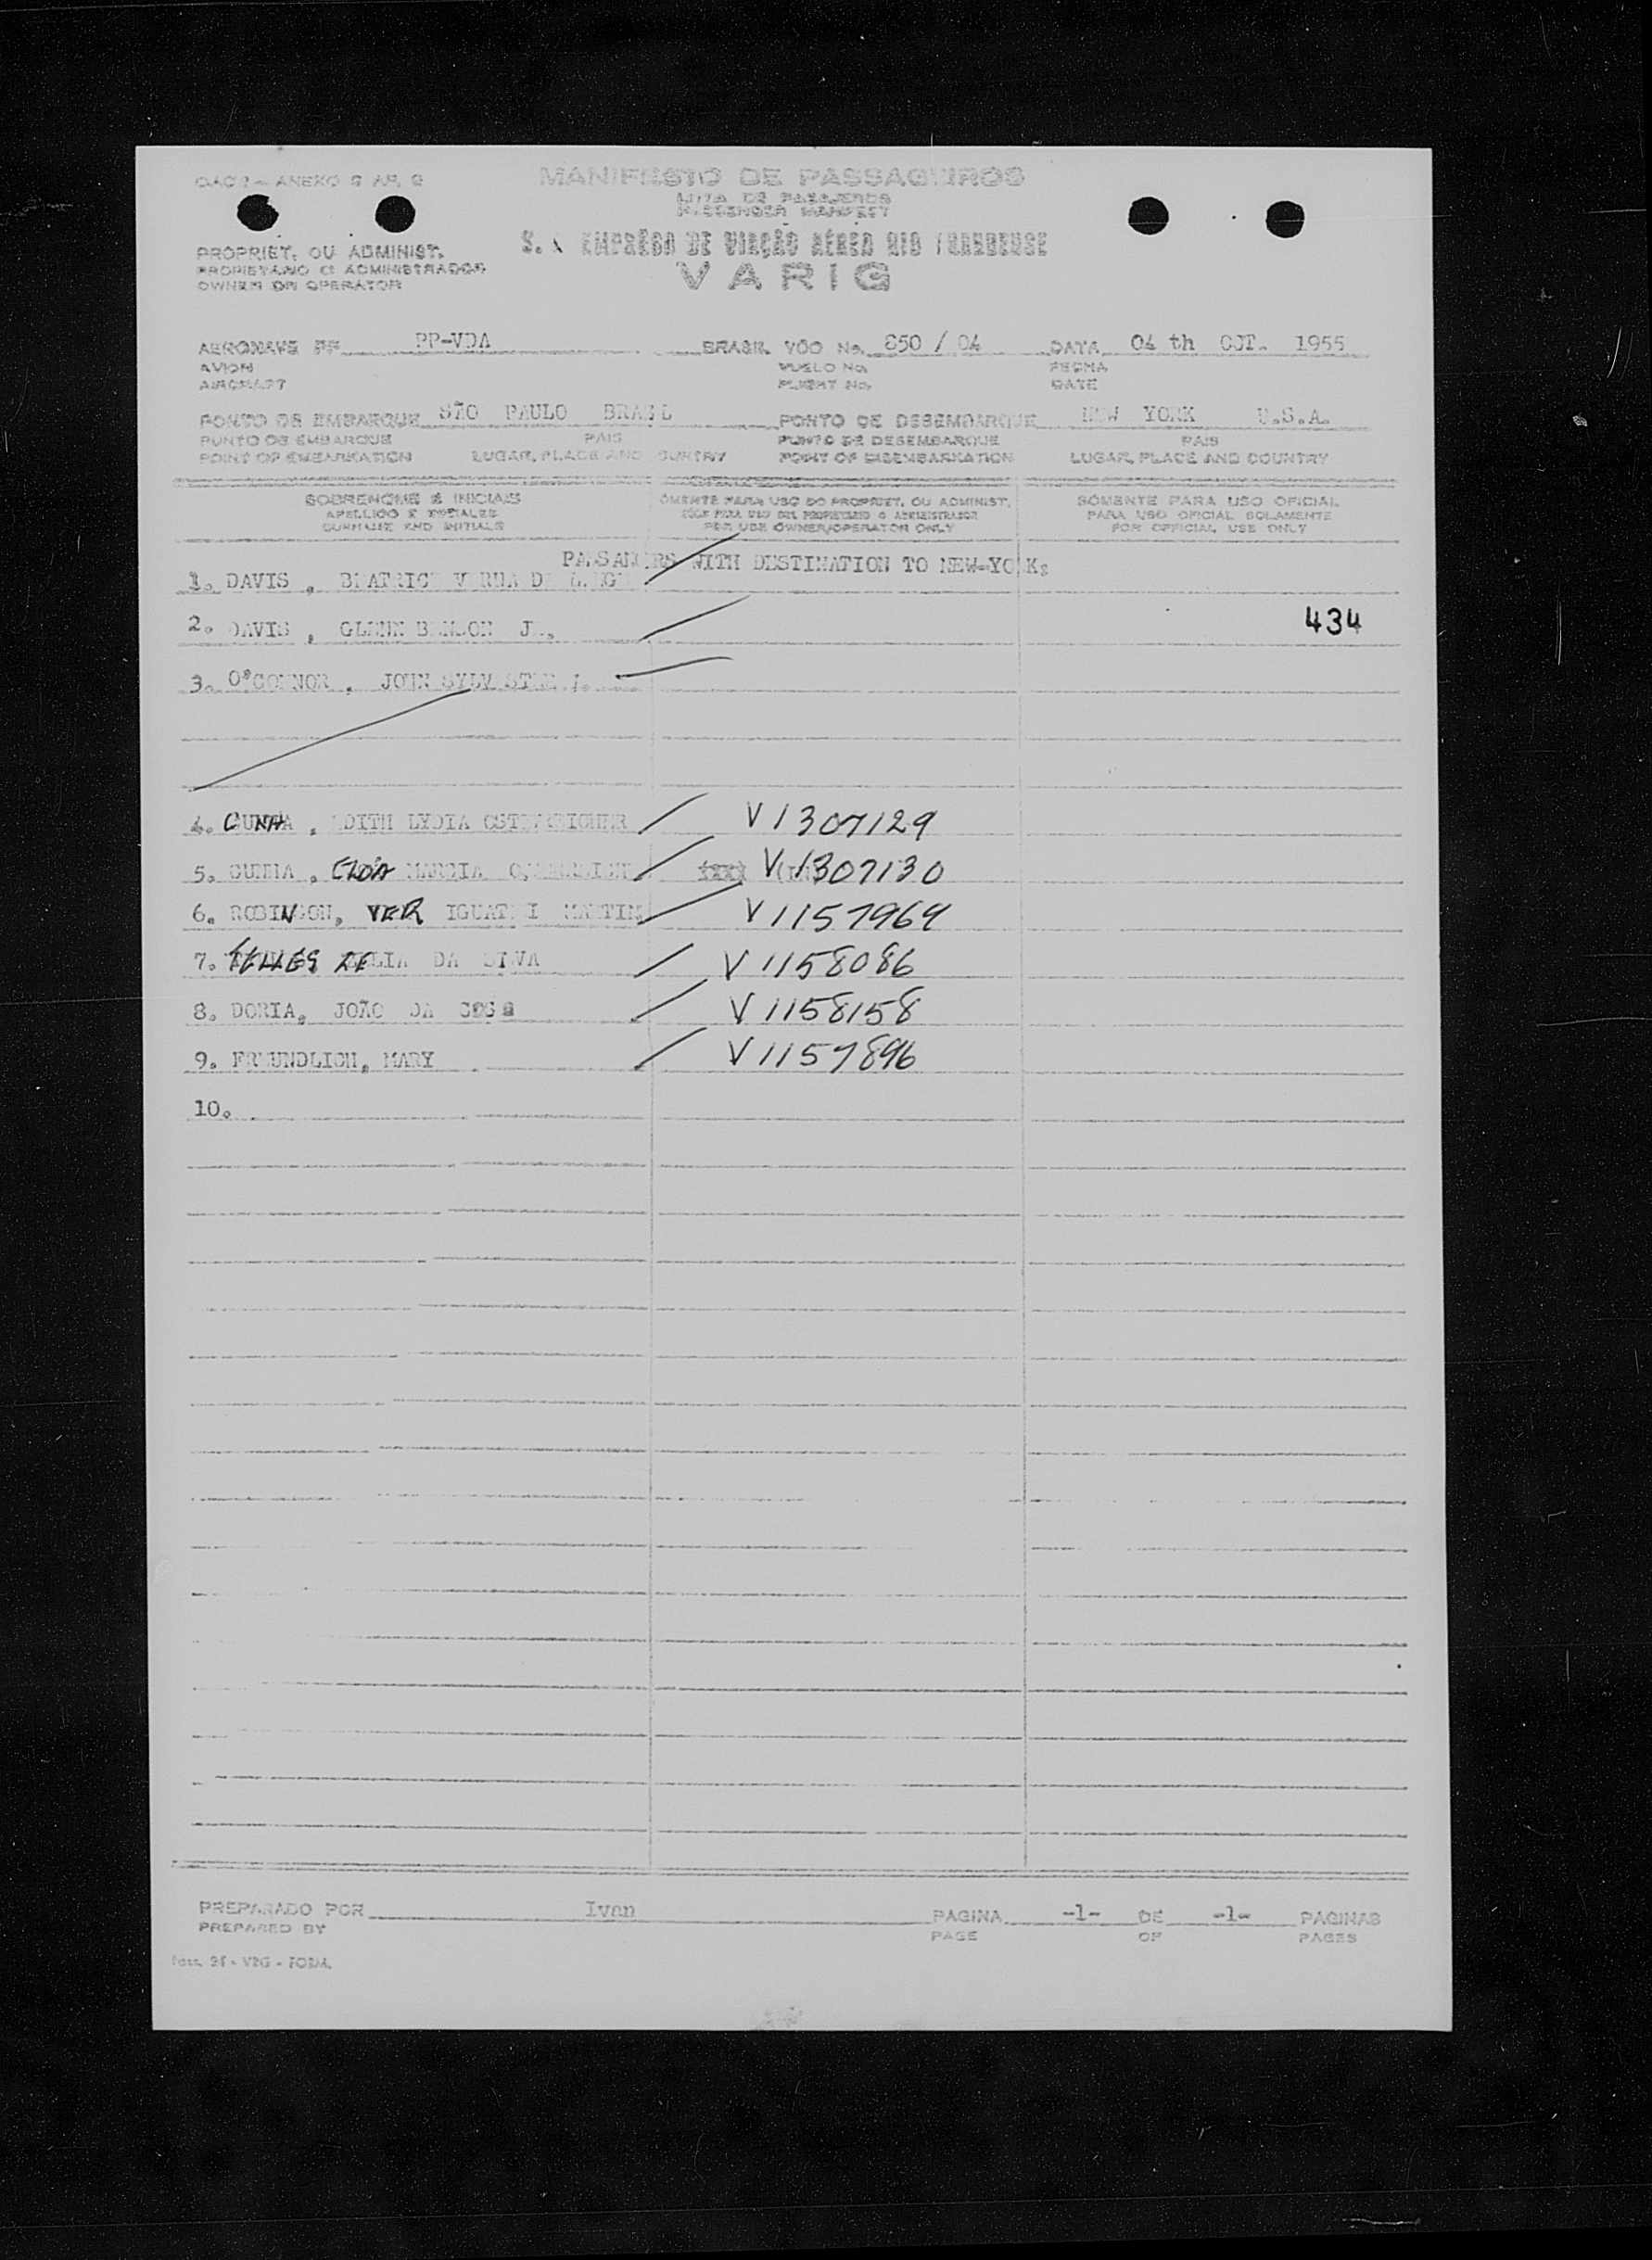 MANIFESTO DE PASSAGEIROS
LISTA DE PASAJEROS
PASSENGER MANIFEST
S. A. EMPRÊSA DE VIAÇÃO AÉREA RIO GRANDENSE
VARIG
PROPRIET. OU ADMINIST.
PROPIETARIO O ADMINISTRADOR
OWNER OR OPERATOR
AERONAVE PP PP-VDA BRASIL VÔO No. 850 / 04 DATA 04 th OCT. 1955
AVION VUELO No. FECHA
AIRCRAFT FLIGHT No. DATE
PONTO DE EMBARQUE SÃO PAULO BRASIL PONTO DE DESEMBARQUE NEW YORK U.S.A.
PUNTO DE EMBARQUE PAIS PUNTO DE DESEMBARQUE PAIS
POINT OF EMBARKATION LUGAR, PLACE AND COUNTRY POINT OF DISEMBARKATION LUGAR, PLACE AND COUNTRY
SOBRENOME E INICIAIS SÒMENTE PARA USO DO PROPRIET. OU ADMINIST. SÒMENTE PARA USO OFICIAL
APELLIDO E INICIALES SOLO PARA USO DEL PROPIETARIO O ADMINISTRADOR PARA USO OFICIAL SOLAMENTE
SURNAME AND INITIALS FOR USE OWNER/OPERATOR ONLY FOR OFFICIAL USE ONLY
PASSANGERS WITH DESTINATION TO NEW-YORK:
1. DAVIS, BEATRICE VERNA
2. DAVIS, GLENN BENSON JR. 434
3. O'CONNOR, JOHN SYLVESTER
4. CUNHA, EDITH LYDIA OSTERREICHER V1307129
5. CUNHA, MARCIA V1307130
6. ROBINSON, VERA MARTIN V1157969
7. TELLES DA SILVA V1158086
8. DORIA, JOÃO DA V1158158
9. FREUNDLICH, MARY V1157896
10.
PREPARADO POR Ivan PAGINA -1- DE -1- PAGINAS
PREPARED BY PAGE OF PAGES